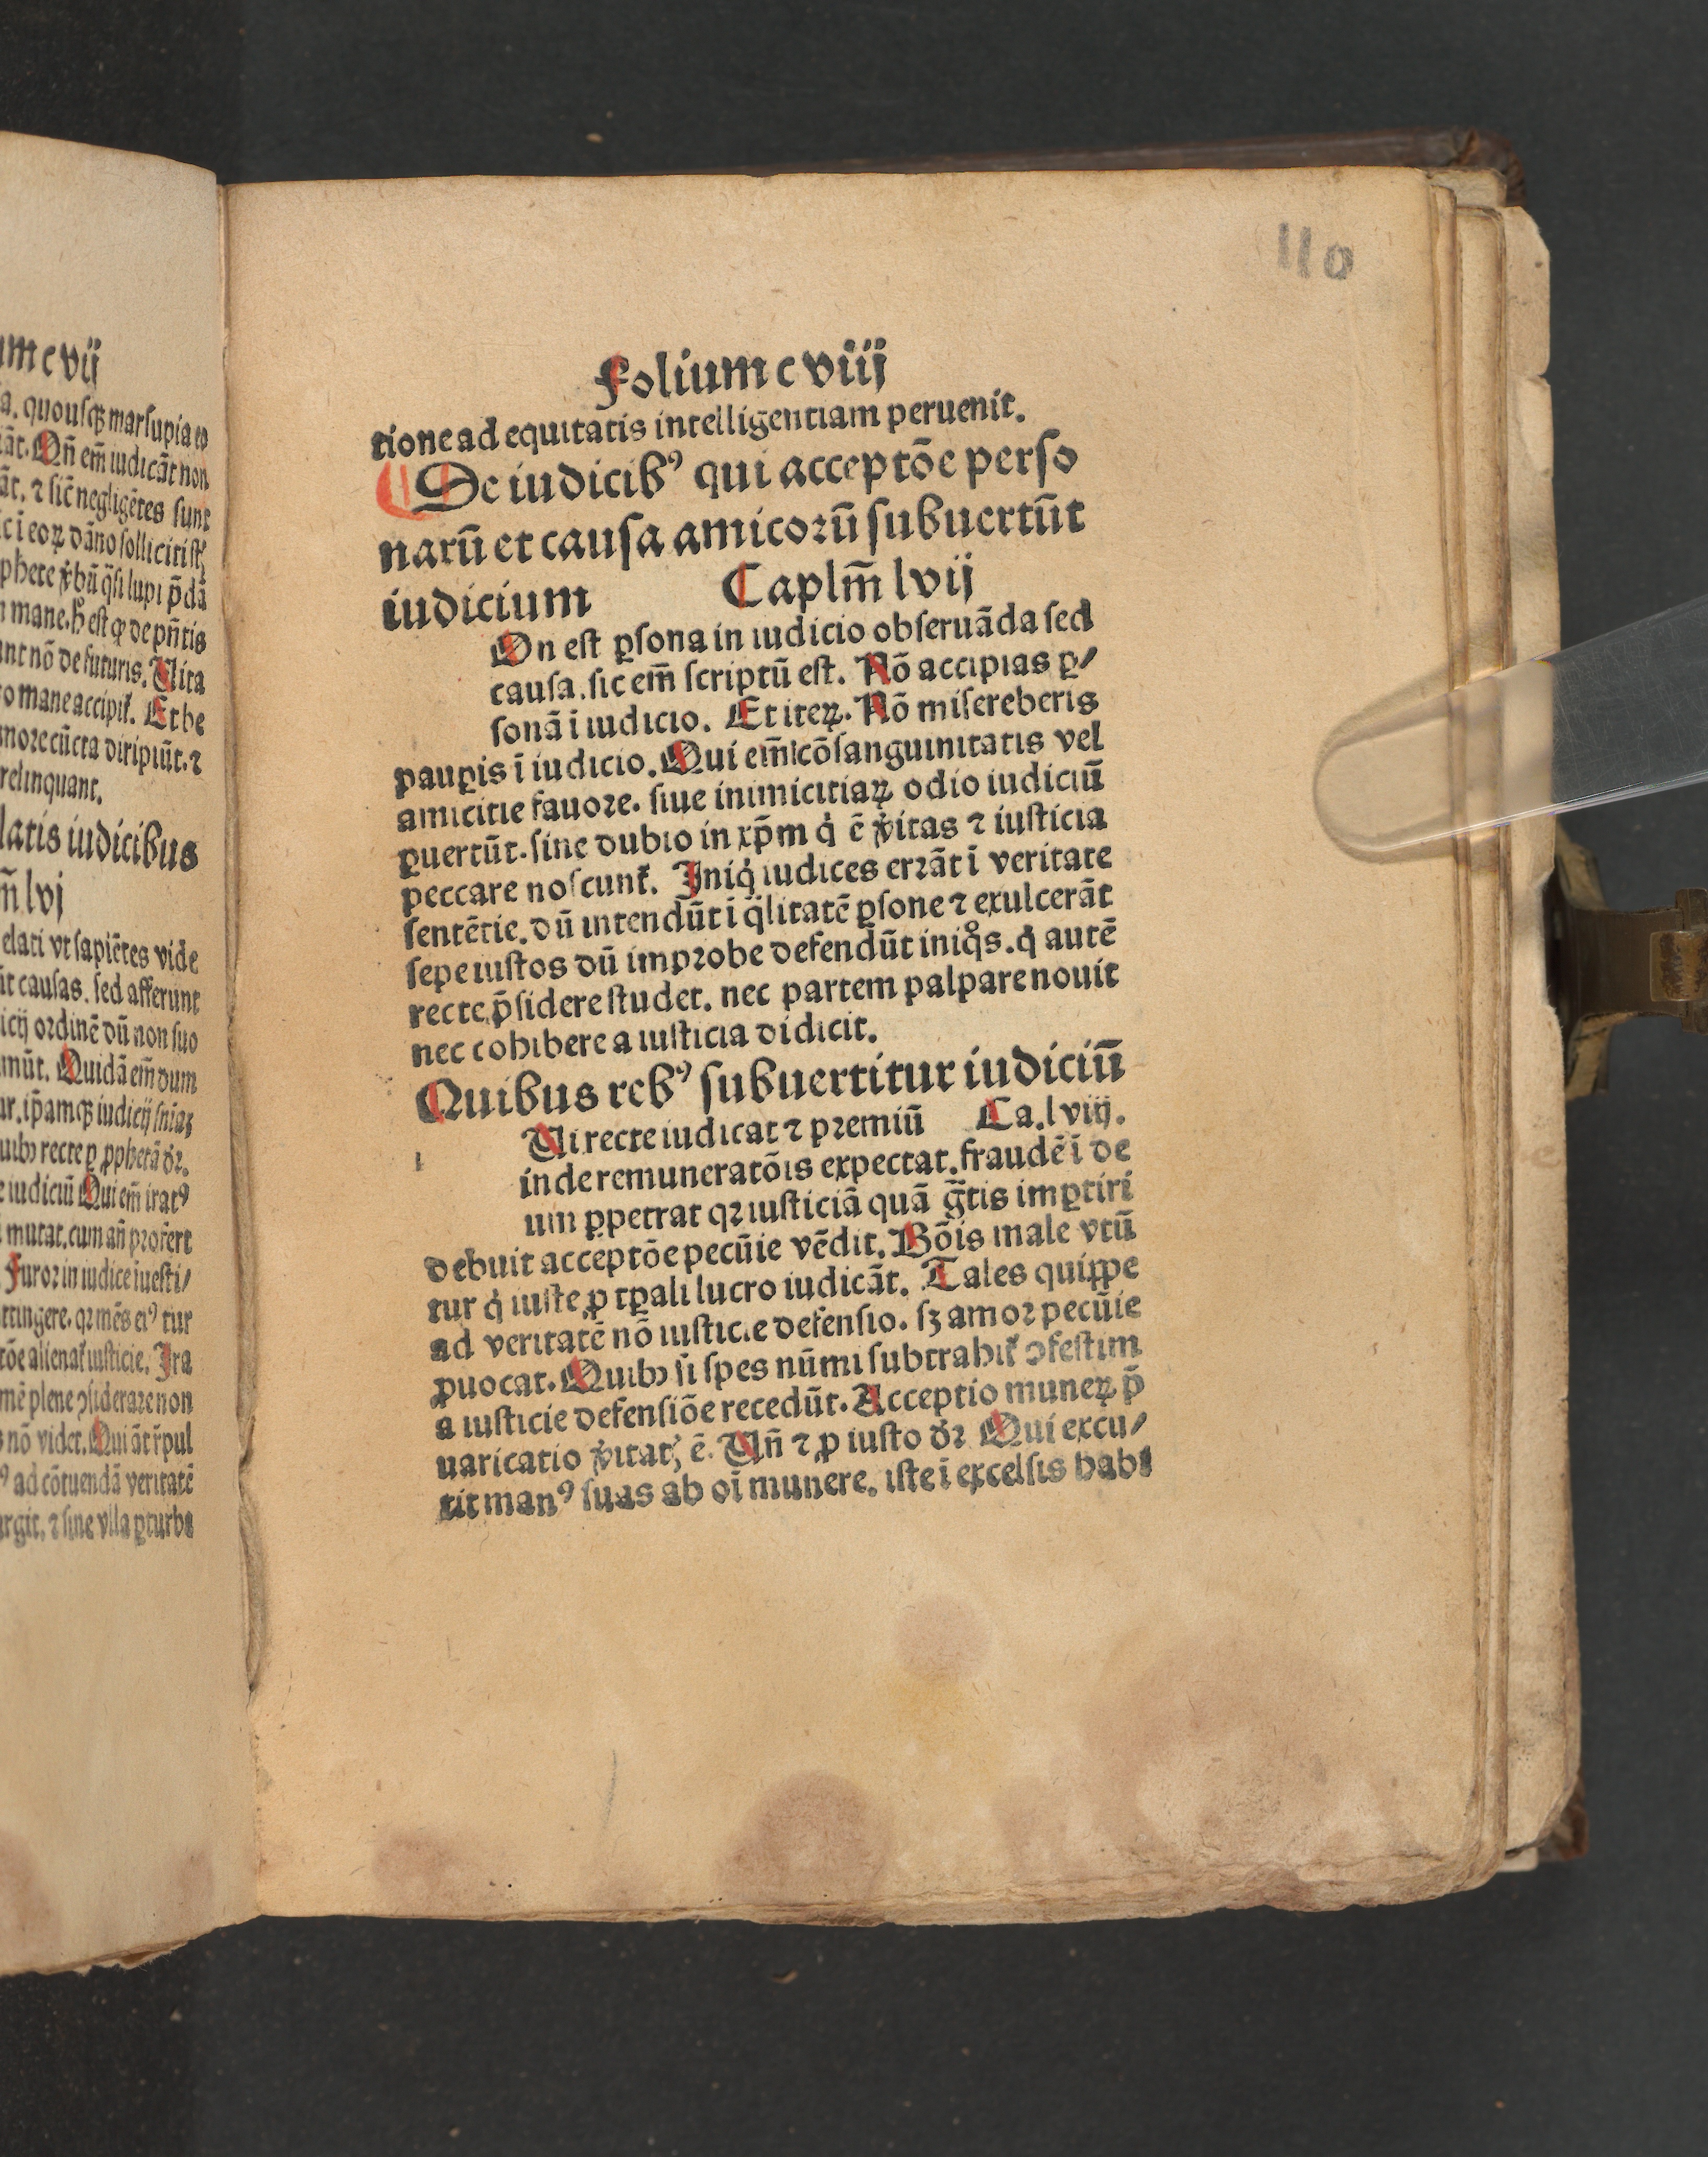 um c vij
a. quousqꝫ marsupia eo
āt. Qn̄ em̄ iudicāt non
āt. ⁊ sic̄ negligētes sunt
ic i eoꝝ dāno solliciti st̄
phete v̄bū q̄si lupi p̄dā
mane. h̄ est qꝙ de pn̄tis
unt nō de futuris. Uita
o mane accipit̄. Et be
more cūcta diripiūt. ⁊
relinquant.
latis iudicibus
m̄ lvj
elati vt sapiētes vide
ūt causas. sed afferunt
icij ordinē dū non suo
inūt. Quidā em̄ dum
ur. ip̄amqꝫ iudicij snīaꝫ
uibꝰ recte ꝑ ꝓphetā dr̄.
e iudiciū Qui em̄ iratꝰ
mutat. cum an̄ profert
Furor in iudice īuesti/
ttingere. qꝛ mēs eiꝰ tur
tōe alienat̄ iusticie. Ira
mē plene ꝯsiderare non
nō videt. Qui āt r̄pul
ꝰ ad cōtuendā veritatē
rgit. ⁊ sine vlla ꝑturba
110
Folium c viij
tione ad equitatis intelligentiam peruenit.
De iudicibꝰ qui acceptōe perso
narū et causa amicorū subuertūt
iudicium Caplm̄ lvij
On est ꝑsona in iudicio obseruāda sed
causa. sic em̄ scriptū est. Nō accipias ꝑ/
sonā ī iudicio. Et iteꝝ. Nō misereberis
pauꝑis ī iudicio. Qui em̄ cōsanguinitatis vel
amicitie fauore. siue inimicitiaꝝ odio iudiciū
ꝑuertūt. sine dubio in xp̄m q̇ ē v̄itas ⁊ iusticia
peccare noscunt̄. Iniq̇ iudices errāt ī veritate
sentētie. dū intendūt ī q̄litatē ꝑsone ⁊ exulcerāt
sepe iustos dū improbe defendūt iniqͦs. q̇ autē
recte p̄sidere studet. nec partem palpare nouit
nec cohibere a iusticia didicit.
Quibus rebꝰ subuertitur iudiciū
Ui recte iudicat ⁊ premiū Ca. lviij.
inde remuneratōis expectat. fraudē ī de
um ꝑpetrat qꝛ iusticiā quā gr̄tis imꝑtiri
debuit acceptōe pecūie vēdit. Bōis male vtū
tur q̇ iuste ꝓ tꝑali lucro iudicāt. Tales quippe
ad veritatē nō iusticie defensio. sꝫ amor pecūie
ꝓuocat. Quibꝰ si spes nūmi subtrahit̄ ꝯfestim
a iusticie defensiōe recedūt. Acceptio muneꝝ p̄
uaricatio v̄itatꝭ ē. Un̄ ⁊ ꝓ iusto dr̄ Qui excu/
tit manꝰ suas ab oī munere. iste ī excelsis habi